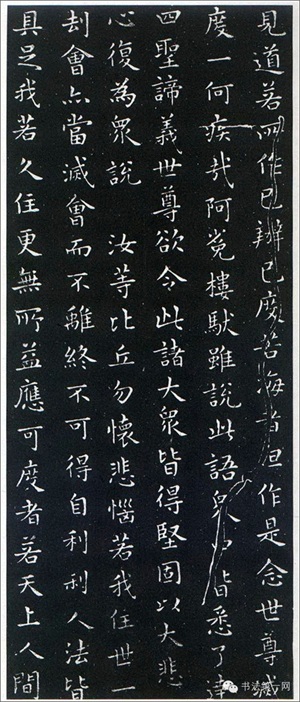 見道若所作已辦已度苦海者但作是念世尊滅
度一何疾哉阿㝹樓馱雖說此語眾中皆悉了達
四聖諦義世尊欲令此諸大眾皆得堅固以大悲
心復為眾說 汝等比丘勿懷悲惱若我住世一
刧會亦當滅會而不離終不可得自利利人法皆
具足我若久住更無所益應可度者若天上人間